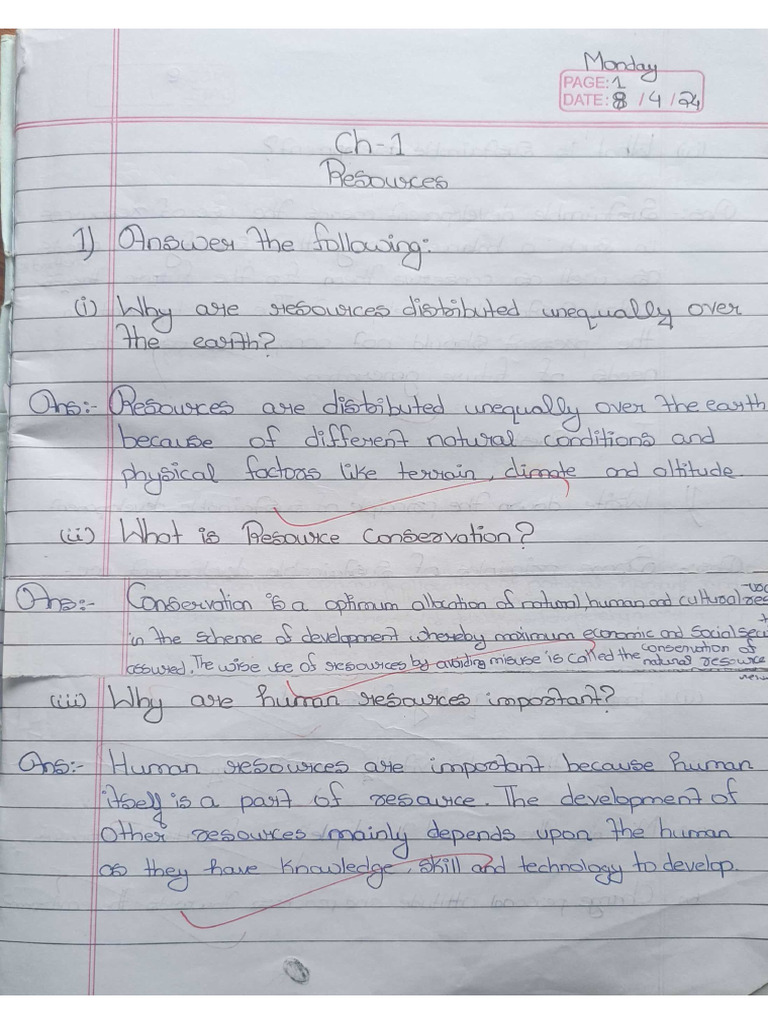 Monday
PAGE: 1
DATE: 8 / 4 / 24
Ch-1
Resources
1) Answer the following:
(i) Why are resources distributed unequally over
the earth?
Ans:- Resources are distributed unequally over the earth
because of different natural conditions and
physical factors like terrain, climate and altitude.
(ii) What is Resource Conservation?
Ans:- Conservation is a optimum allocation of natural, human and cultural
in the scheme of development whereby maximum economic and Social
assured. The wise use of resources by avoiding misuse is called the conservation of
natural resource
(iii) Why are human resources important?
Ans:- Human resources are important because human
itself is a part of resource. The development of
other resources mainly depends upon the human
as they have knowledge, skill and technology to develop.